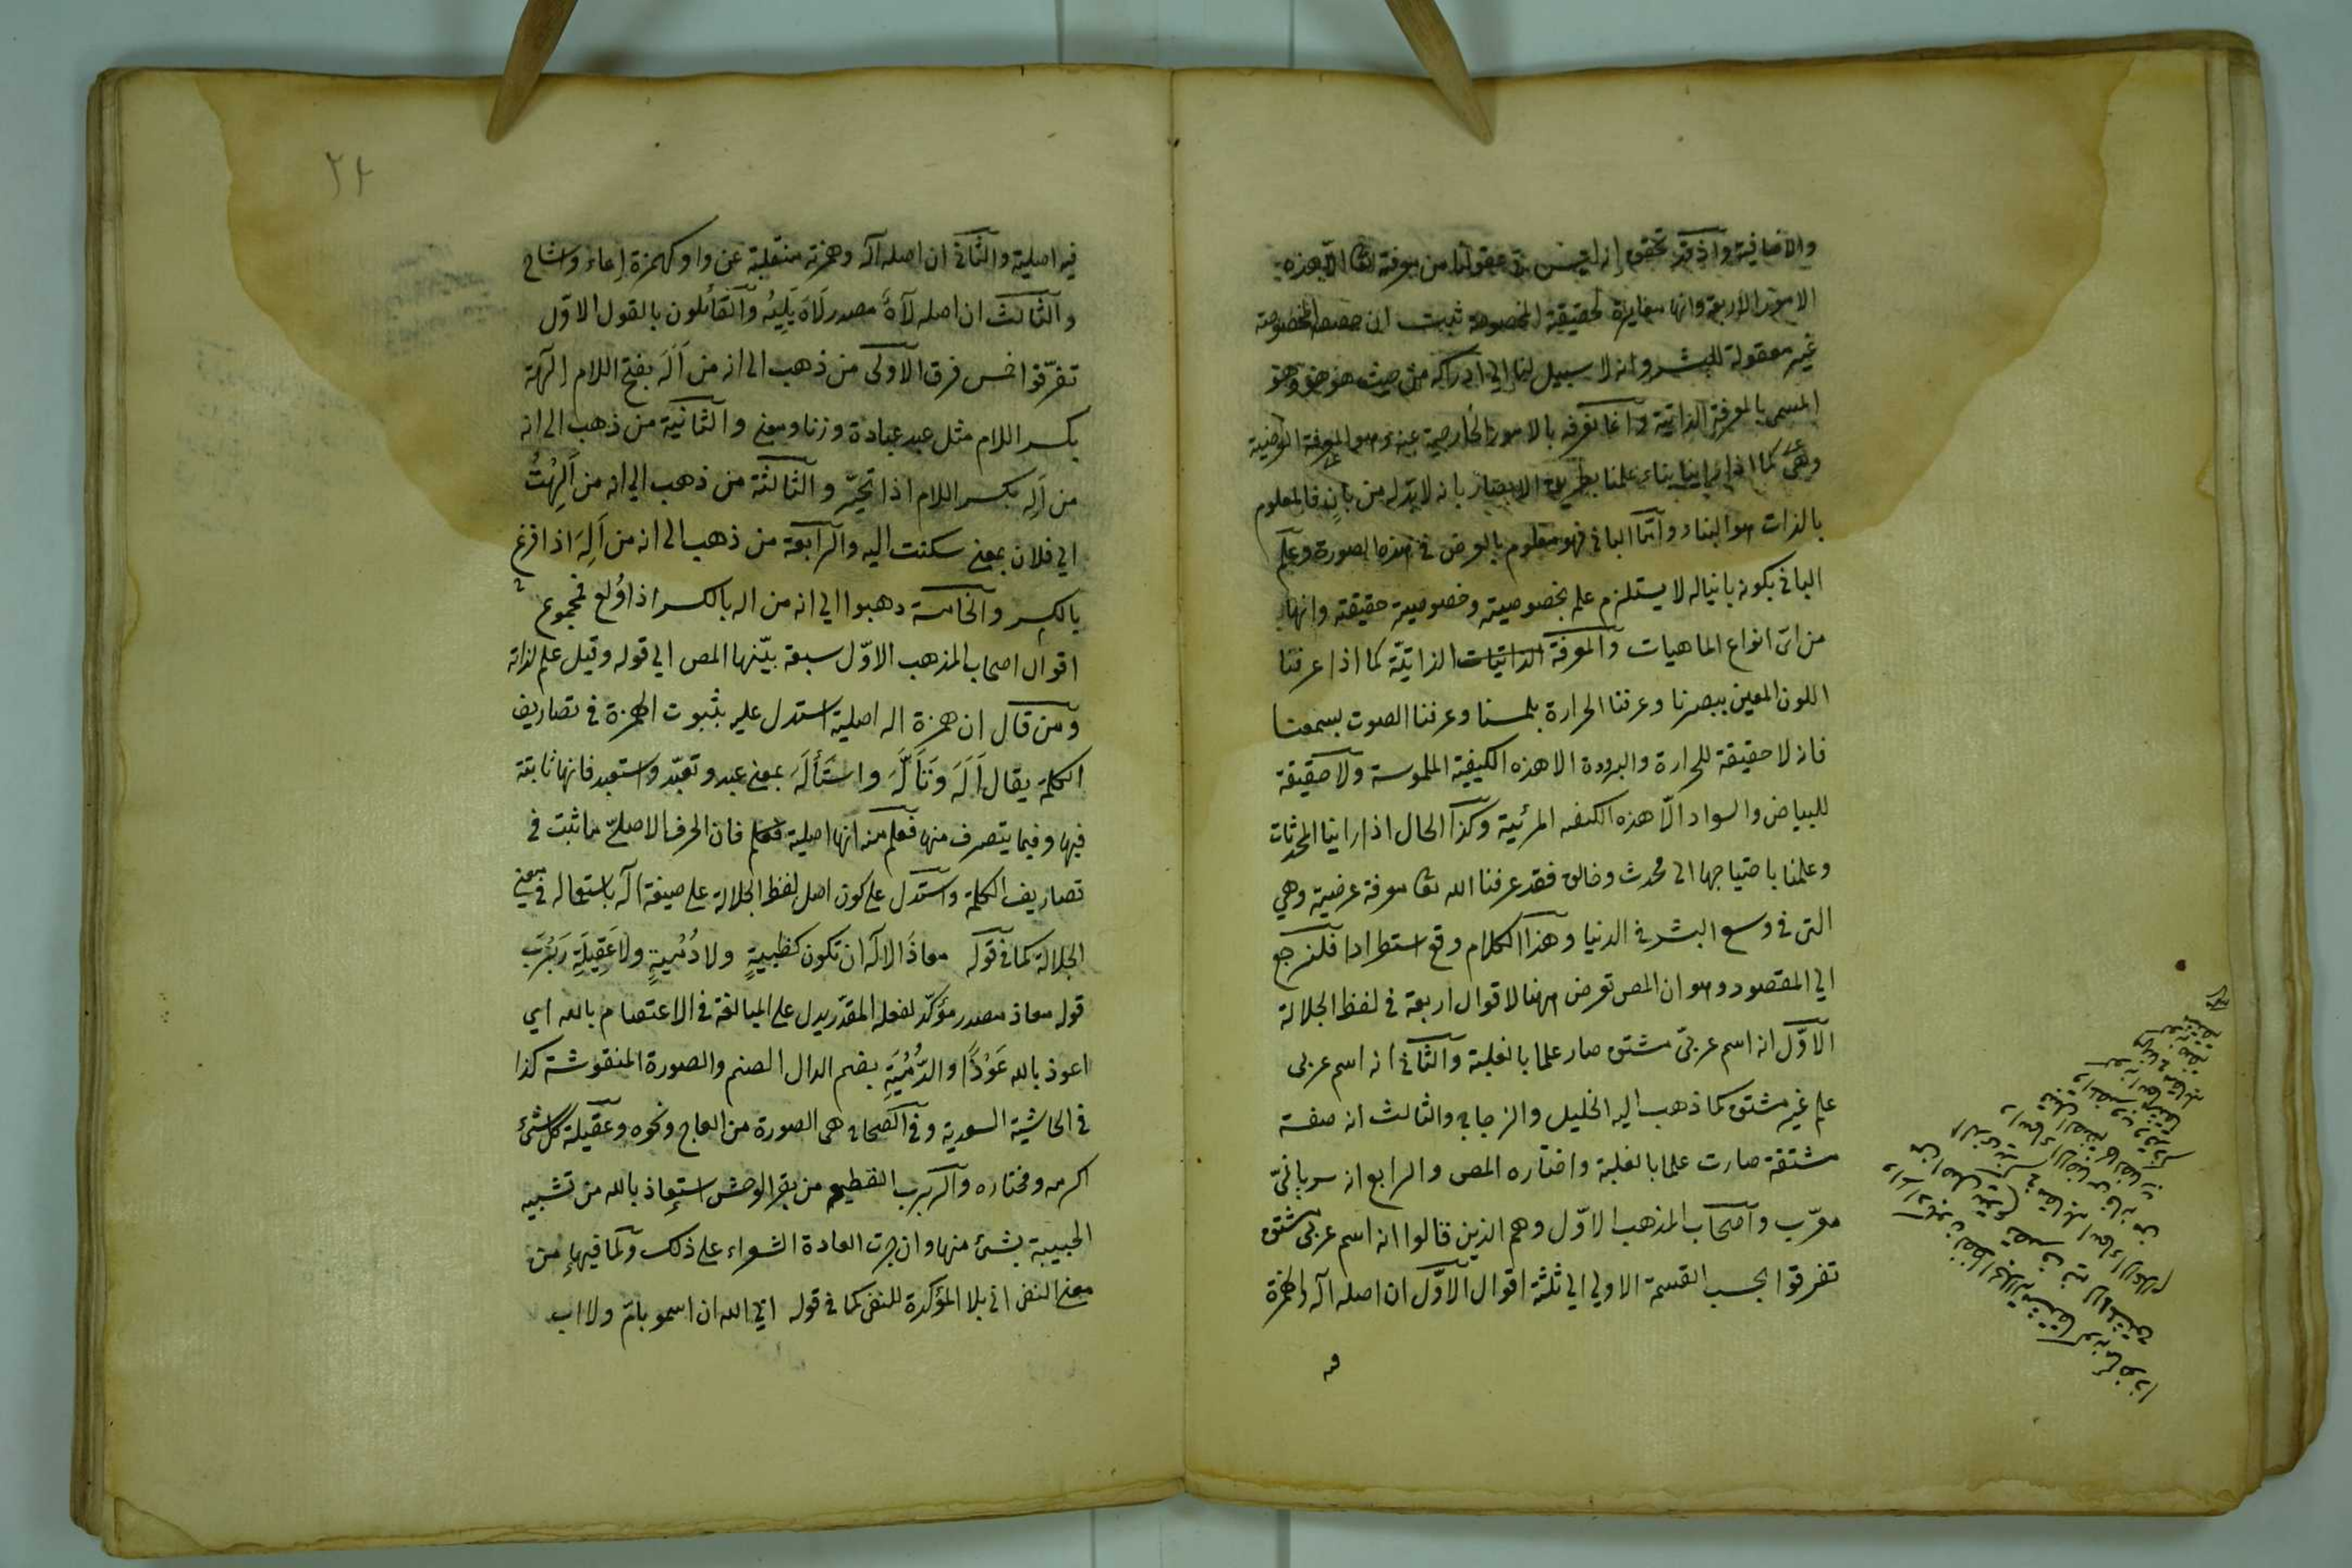 والاضافية واذ قد تحقق انه ليس في عقولنا من معرفة الله تعا الا هذه
الامور الاربعة وانها مغايرة لحقيقة المخصوصة ثبت ان حقيقته المخصوصة
غير معقولة للبشر وانه لا سبيل لنا الى ادراكه من حيث هو هو وهو
المسمى بالمعرفة الذاتية وانما نعرفه بالامور الخارجية عنه وهو المعرفة العرضية
وهي كما اذا راينا بناء علمنا بطريق الابصار بانه لا بد له من بان فالمعلوم
بالذات هو البناء واما الباني فهو معلوم بالعرض في هذه الصورة وعلم
الباني بكونه بانيا له لا يستلزم علم بخصوصيته وخصوصية حقيقته وانها
من اى انواع الماهيات والمعرفة الذاتيات الذاتيّة كما اذا عرفنا
اللون المعين ببصرنا وعرفنا الحرارة بلمسنا وعرفنا الصوت بسمعنا
فانه لا حقيقة للحرارة والبرودة الا هذه الكيفية الملموسة ولا حقيقة
للبياض والسواد الّا هذه الكيفية المرئية وكذا الحال اذا راينا المحدثات
وعلمنا باحتياجها الى محدث وخالق فقد عرفنا الله تعا معرفة عرضية وهي
التى في وسع البشر في الدنيا وهذا الكلام وقع استطرادا فلنرجع
الي المقصود وهو ان المص تعرض ههنا لاقوال اربعة في لفظ الجلالة
الاوّل انه اسم عربىّ مشتق صار علما بالغلبة والثاني انه اسم عربى
علم غير مشتق كما ذهب اليه الخليل والزجاج والثالث انه صفة
مشتقة صارت علما بالغلبة واختاره المص والرابع انه سريانىّ
معرّب واصحاب المذهب الاوّل وهم الذين قالوا انه اسم عربى مشتق
تفرقوا بحسب القسمة الاولي الي ثلثة اقوال الاوّل ان اصله اله والهمزة
فيه
فيه اصلية والثاني ان اصله اله وهمزته منقلبة عن واو كهمزة اعاء واشاح
والثالث ان اصله لَاهًا مصدر لَاهَ يَلِيْهُ والقائلون بالقول الاوّل
تفرّقوا خمس فرق الاولى من ذهب الى انه من اَلَهَ بفتح اللام الهة
بكسر اللام مثل عبد عبادة وزنا ومعنى والثانية من ذهب الى انه
من اَلِه بكسر اللام اذا تحيّر والثالثة من ذهب الى انه من اَلِهْتُ
الي فلان بمعنى سكنت اليه والرابعة من ذهب الى انه من اَلِهَ اذا فزع
بالكسر والخامسة ذهبوا الي انه من اله بالكسر اذا اُولع فمجموع
اقوال اصحاب المذهب الاوّل سبعة بيّنها المص الي قوله وقيل علم لذاته
ومن قال ان همزة اله اصلية استدل عليه بثبوت الهمزة في تصاريف
الكلمة يقال اَلَهَ وَتَأَلَّهَ واستَأْلَهَ بمعنى عبد وتعبّد واستعبد فانها ثابتة
فيها وفيما يتصرف منها فعلم منه انها اصلية فان الحرف الاصلىّ ما ثبت في
تصاريف الكلمة واستدل على كون اصل لفظ الجلالة على صيغة اله باستعماله في معنى
الجلالة كما في قوله معاذَ الاله ان تكون كظبيةٍ ولا دُمْيةٍ ولا عَقِيلَةِ رَبْرَب
قوله معاذ مصدر مؤكّد لفعله المقدّر يدل على المبالغة في الاعتصام بالله اي
اعوذ بالله عَوْذًا والدُّمْيَةِ بضم الدال الصنم والصورة المنقوشة كذا
في الحاشية السعدية وفي الصحاح هى الصورة من العاج ونحوه وعقيلة كل شئ
اكرمه ومختاره والربرب القطيع من بقر الوحش استعاذ بالله من تشبيه
الحبيبة بشئ منها وان جرت العادة الشعراء على ذلك ولما فيها من
معنى النفى اتى بلا المؤكدة للنفى كما في قوله ابي الله ان اسمو بام ولا اب